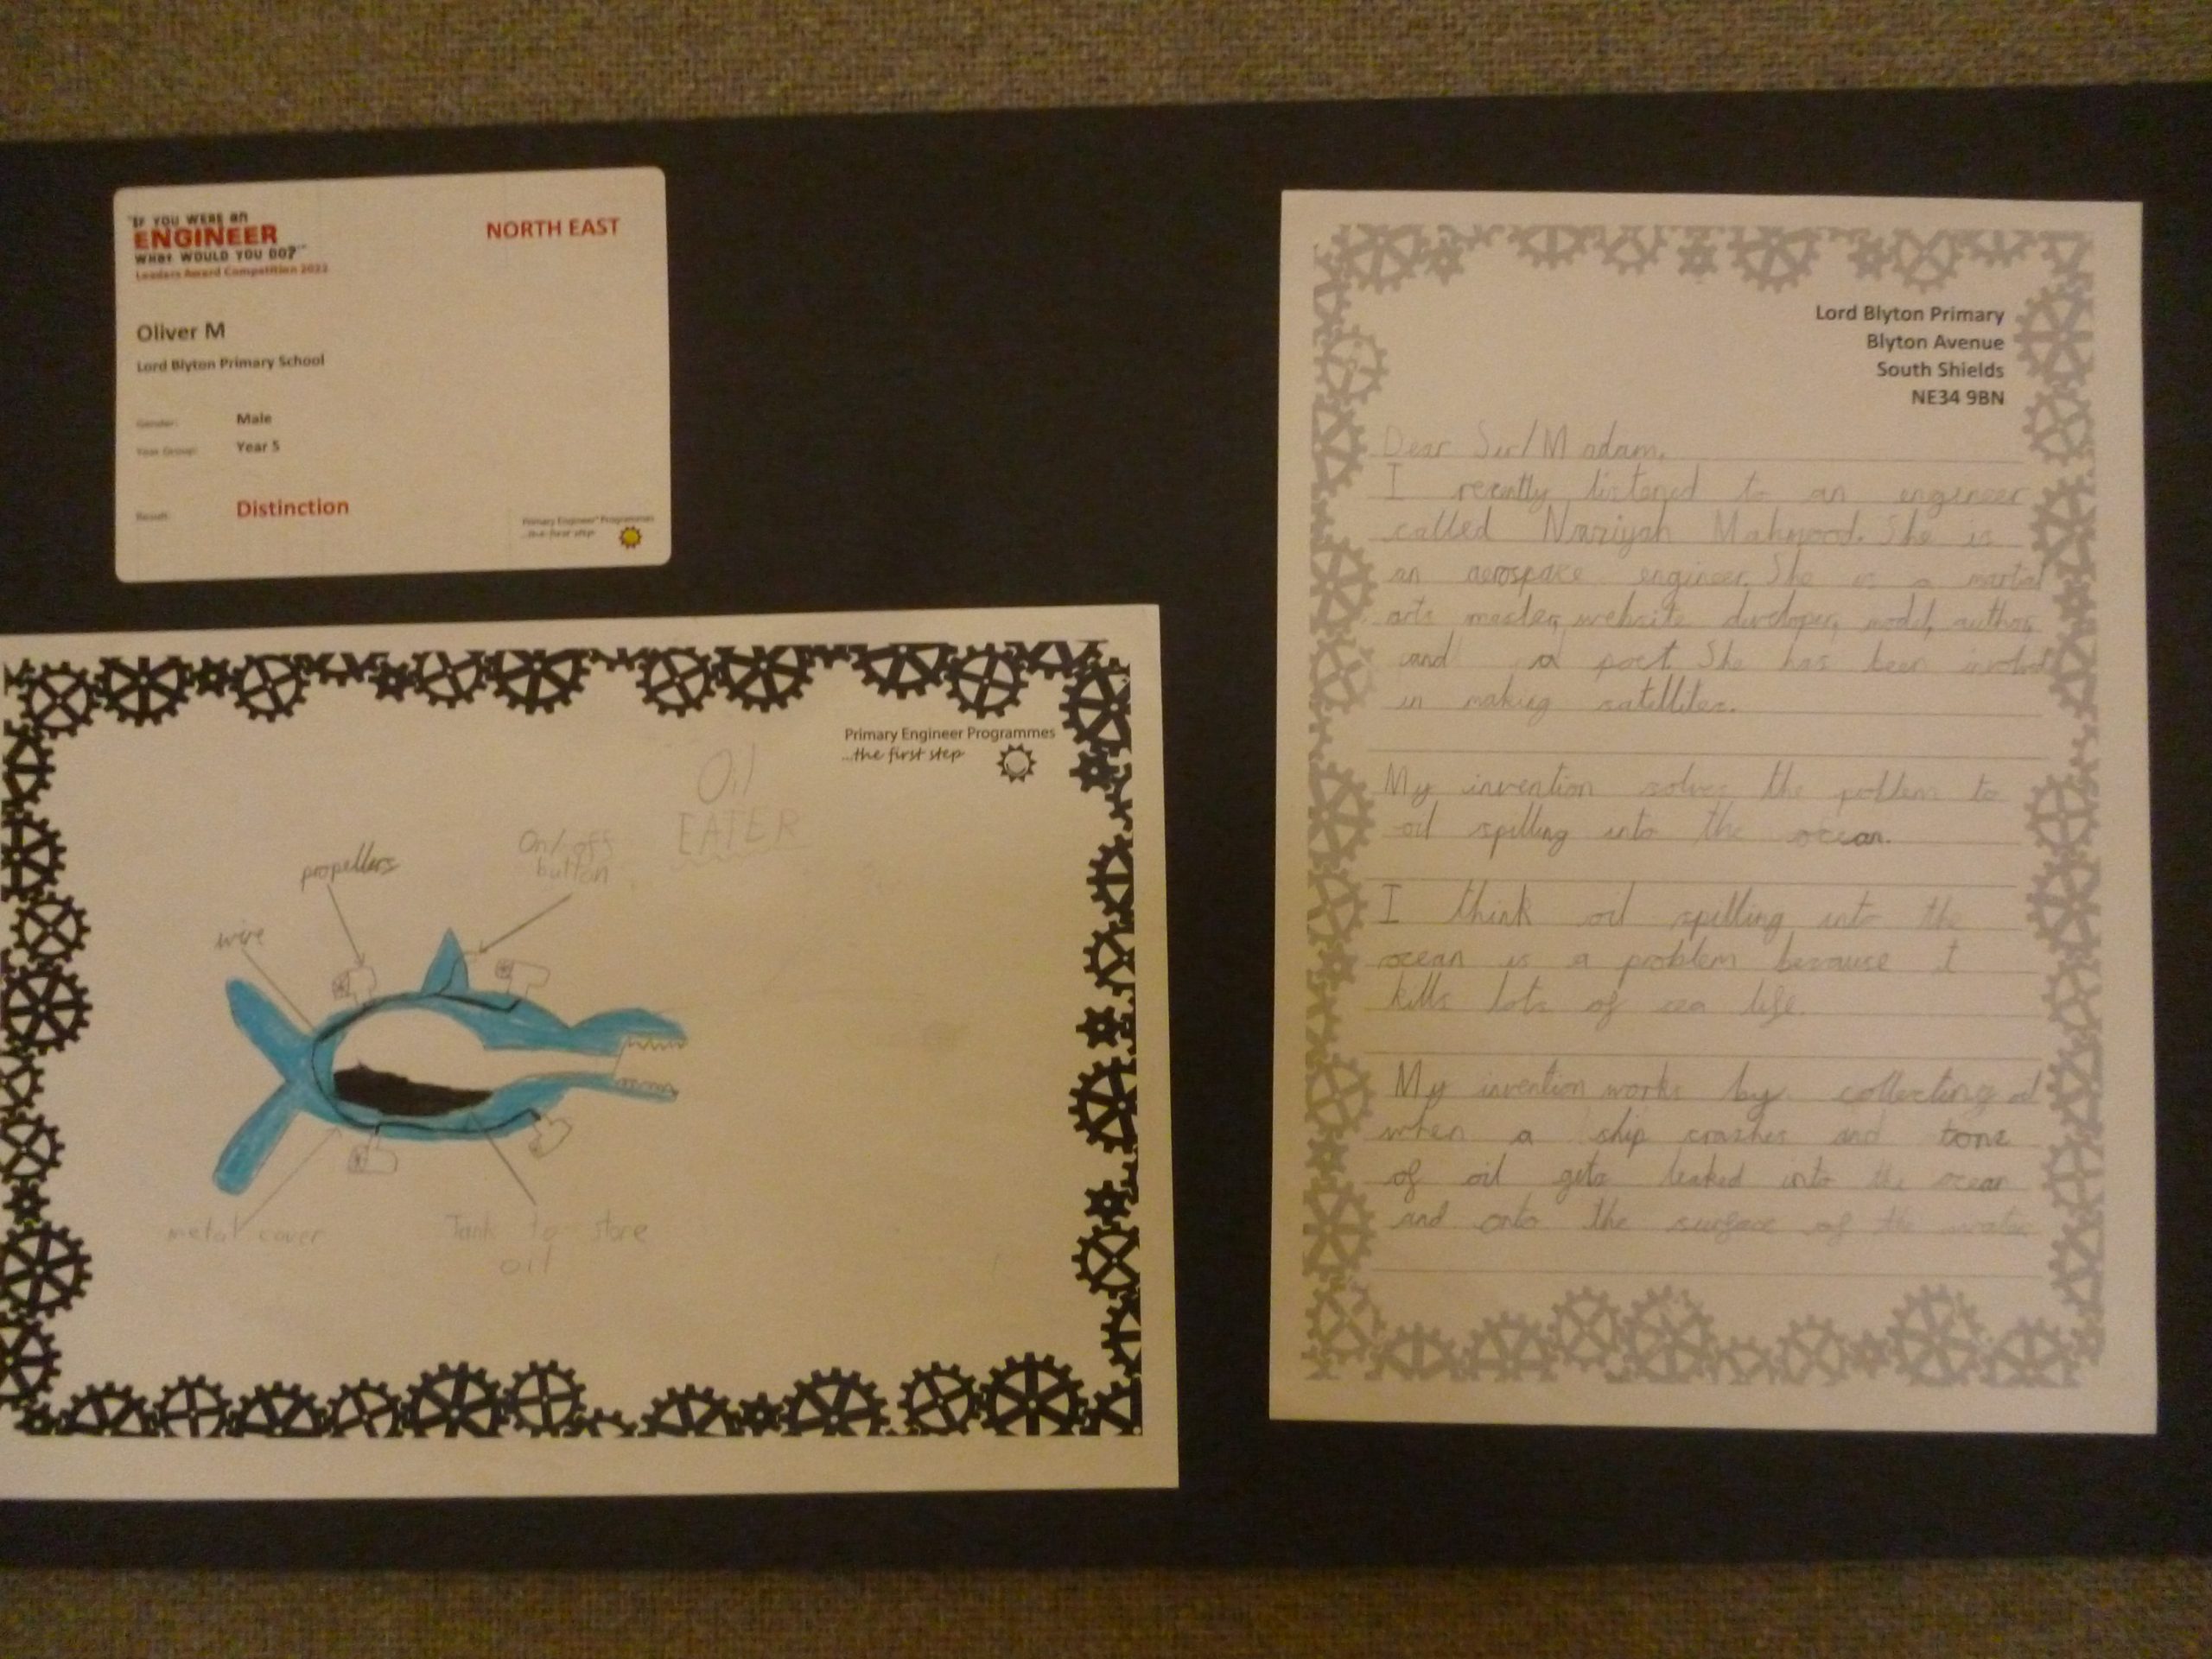 "IF YOU WERE an
ENGINEER
WHAT WOULD YOU DO?"
Leaders Award Competition 2022
NORTH EAST
Oliver M
Lord Blyton Primary School
Gender: Male
Year Group: Year 5
Result: Distinction
Primary Engineer Programmes
...the first step
Primary Engineer Programmes
...the first step
Oil
EATER
On/off
button
propellers
wire
metal cover
Tank to store
oil
Lord Blyton Primary
Blyton Avenue
South Shields
NE34 9BN
Dear Sir/Madam,
I recently listened to an engineer
called Mahmood. She is
an aerospace engineer. She is a martial
arts master, website developer, model, author,
and a poet. She has been involved
in making satellites.
My invention solves the to
oil spilling into the ocean.
I think oil spilling into the
ocean is a problem because it
kills lots of sea life.
My invention works by collecting oil
when a ship crashes and tons
of oil gets leaked into the ocean
and onto the surface of the water